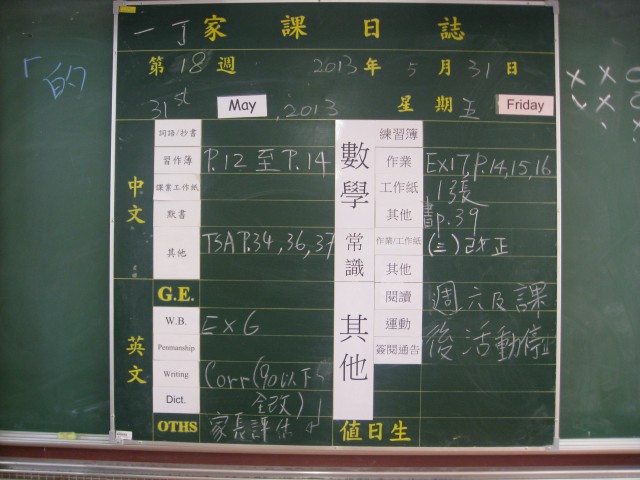 「的
一丁家課日誌
第18週 2013年5月31日
31st May, 2013 星期五 Friday
中文
詞語/抄書
習作簿 P.12至P.14
課業工作紙
默書
其他 TSA P.34, 36, 37
G.E.
英文
W.B. Ex 6
Penmanship
Writing Corr(90以下
Dict. 全改)
OTHS 家長評估
數學
練習簿
作業 Ex17, p.14,15,16
工作紙 1張
其他 書p.39
常識
作業/工作紙 (三)改正
其他
其他
閱讀 週六及課
運動 後活動停止
簽閱通告
值日生